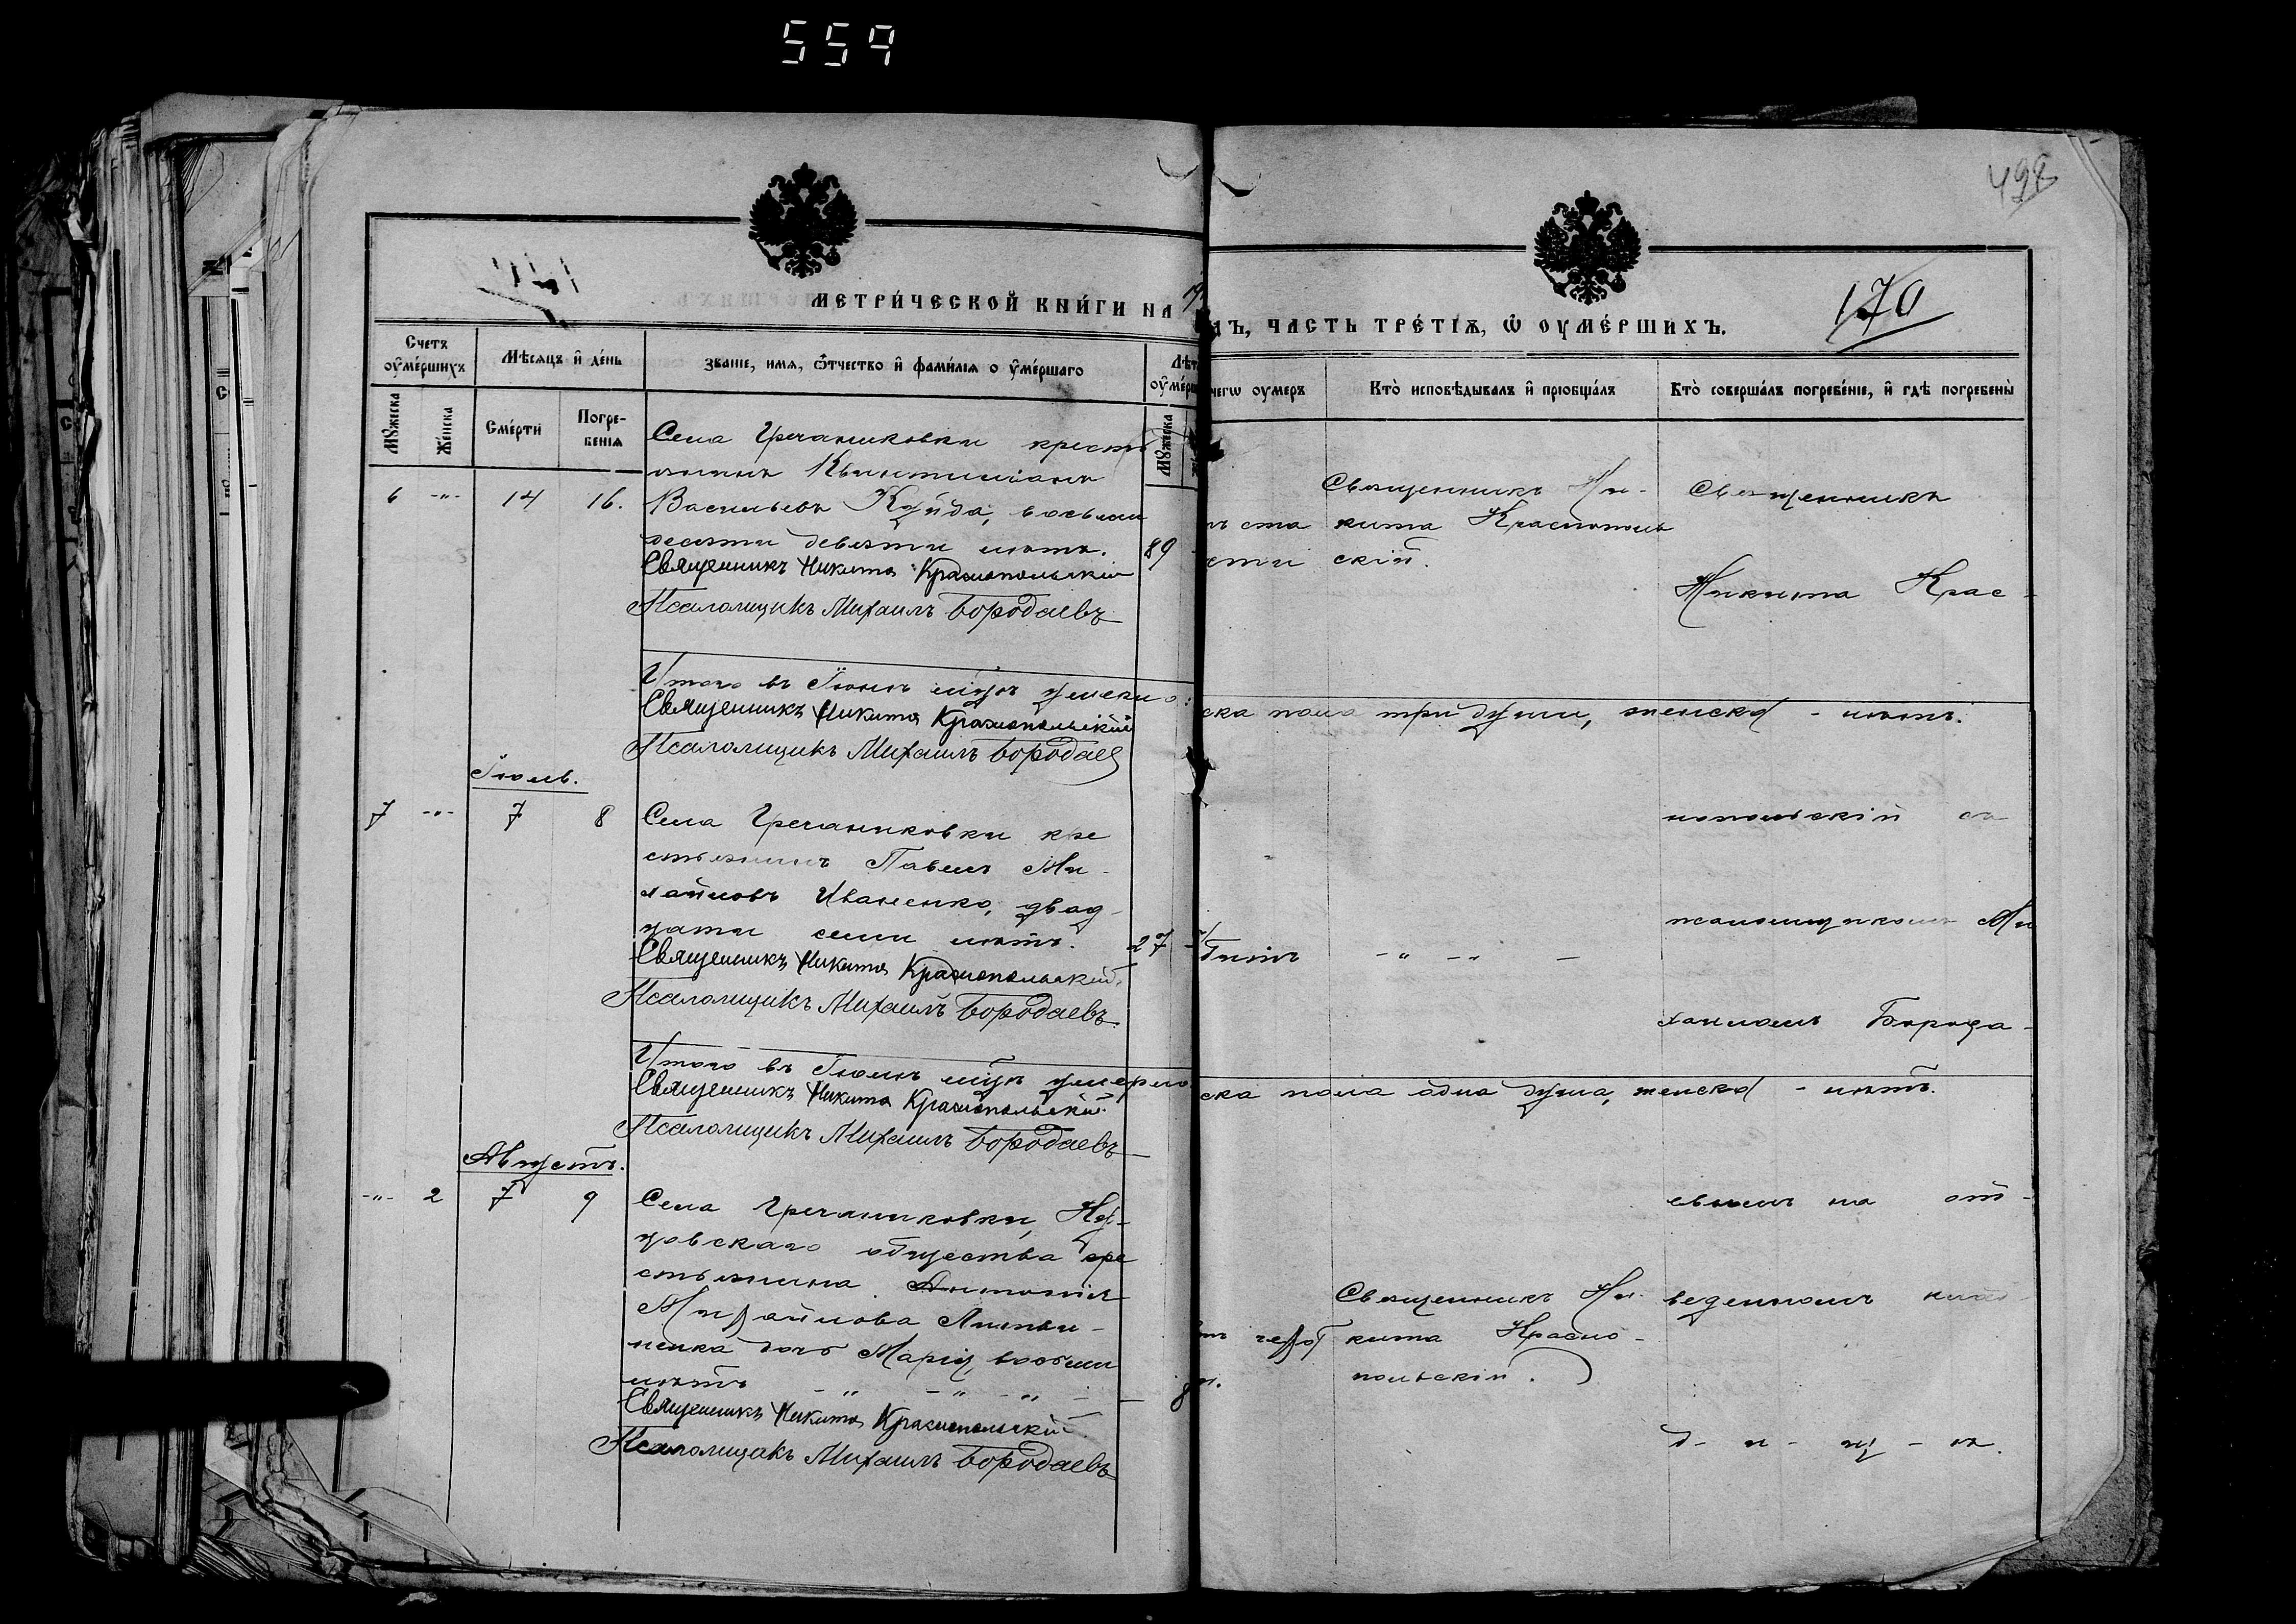 559
498
170
МЕТРИ́ЧЕСКОЙ КНИ́ГИ НА 19
ДЪ, ЧАСТЬ ТРЕ́ТІѦ, Ѡ҆ ОУМЕ́РШИХЪ.
Счетъ оу҆ме́ршихъ
Мѣсяцъ и҆ де́нь
Званіе, имя, ѻтчество и҆ фами́лія о у҆ме́ршаго
Лѣт
оу҆ме́рш
чегѡ оумеръ
Кто̀ исповѣдывалъ и҆ пріобща́лъ
Кто̀ соверша́лъ погребе́ніе, и҆ гдѣ̀ погребены̀
Мꙋжеска
Же́нска
Сме́рти
Погре-
бенія
Мꙋжеска
Села Гречаниковки кресть
6 -"- 14 16.
Васильевъ Куйда, восьми
десяти девяти лѣтъ. 89
Священникъ Никита Краснопольскій
Псаломщикъ Михаилъ Бородаевъ
Священникъ Ни-
кита Краснополь
скій.
ъ ста
сти
Священникъ
Никита Крас-
Итого въ Іюнѣ мцѣ умерло
ска пола три души, женска - нѣтъ.
Священникъ Никита Краснопольскій
Псаломщикъ Михаилъ Бородаев
Іюль.
7 -"- 7 8
Села Гречаниковки кре
стьянинъ Павелъ Ми-
хайловъ Иваненко, двад-
цати семи лѣтъ. 27
Священникъ Никита Краснопольскій
Псаломщикъ Михаилъ Бородаевъ.
нопольскій съ
псаломщикомъ Ми
хаиломъ Борода-
Итого въ Іюлѣ мцѣ умерло
ска пола одна душа, женска - нѣтъ.
Священникъ Никита Краснопольскій
Псаломщикъ Михаилъ Бородаевъ
Августъ.
-"- 2 7 9
Села Гречаниковки,
общества кре
стьянина Антонія
Михайлова Литви-
ненка дочь Марія, восьми
лѣтъ - " - " - " - 8
Священникъ Никита Краснопольскій
Псаломщикъ Михаилъ Бородаевъ
Священникъ Ни-
кита Красно-
польскій.
евымъ на от-
веденномъ клад
б- и - щ - ѣ.